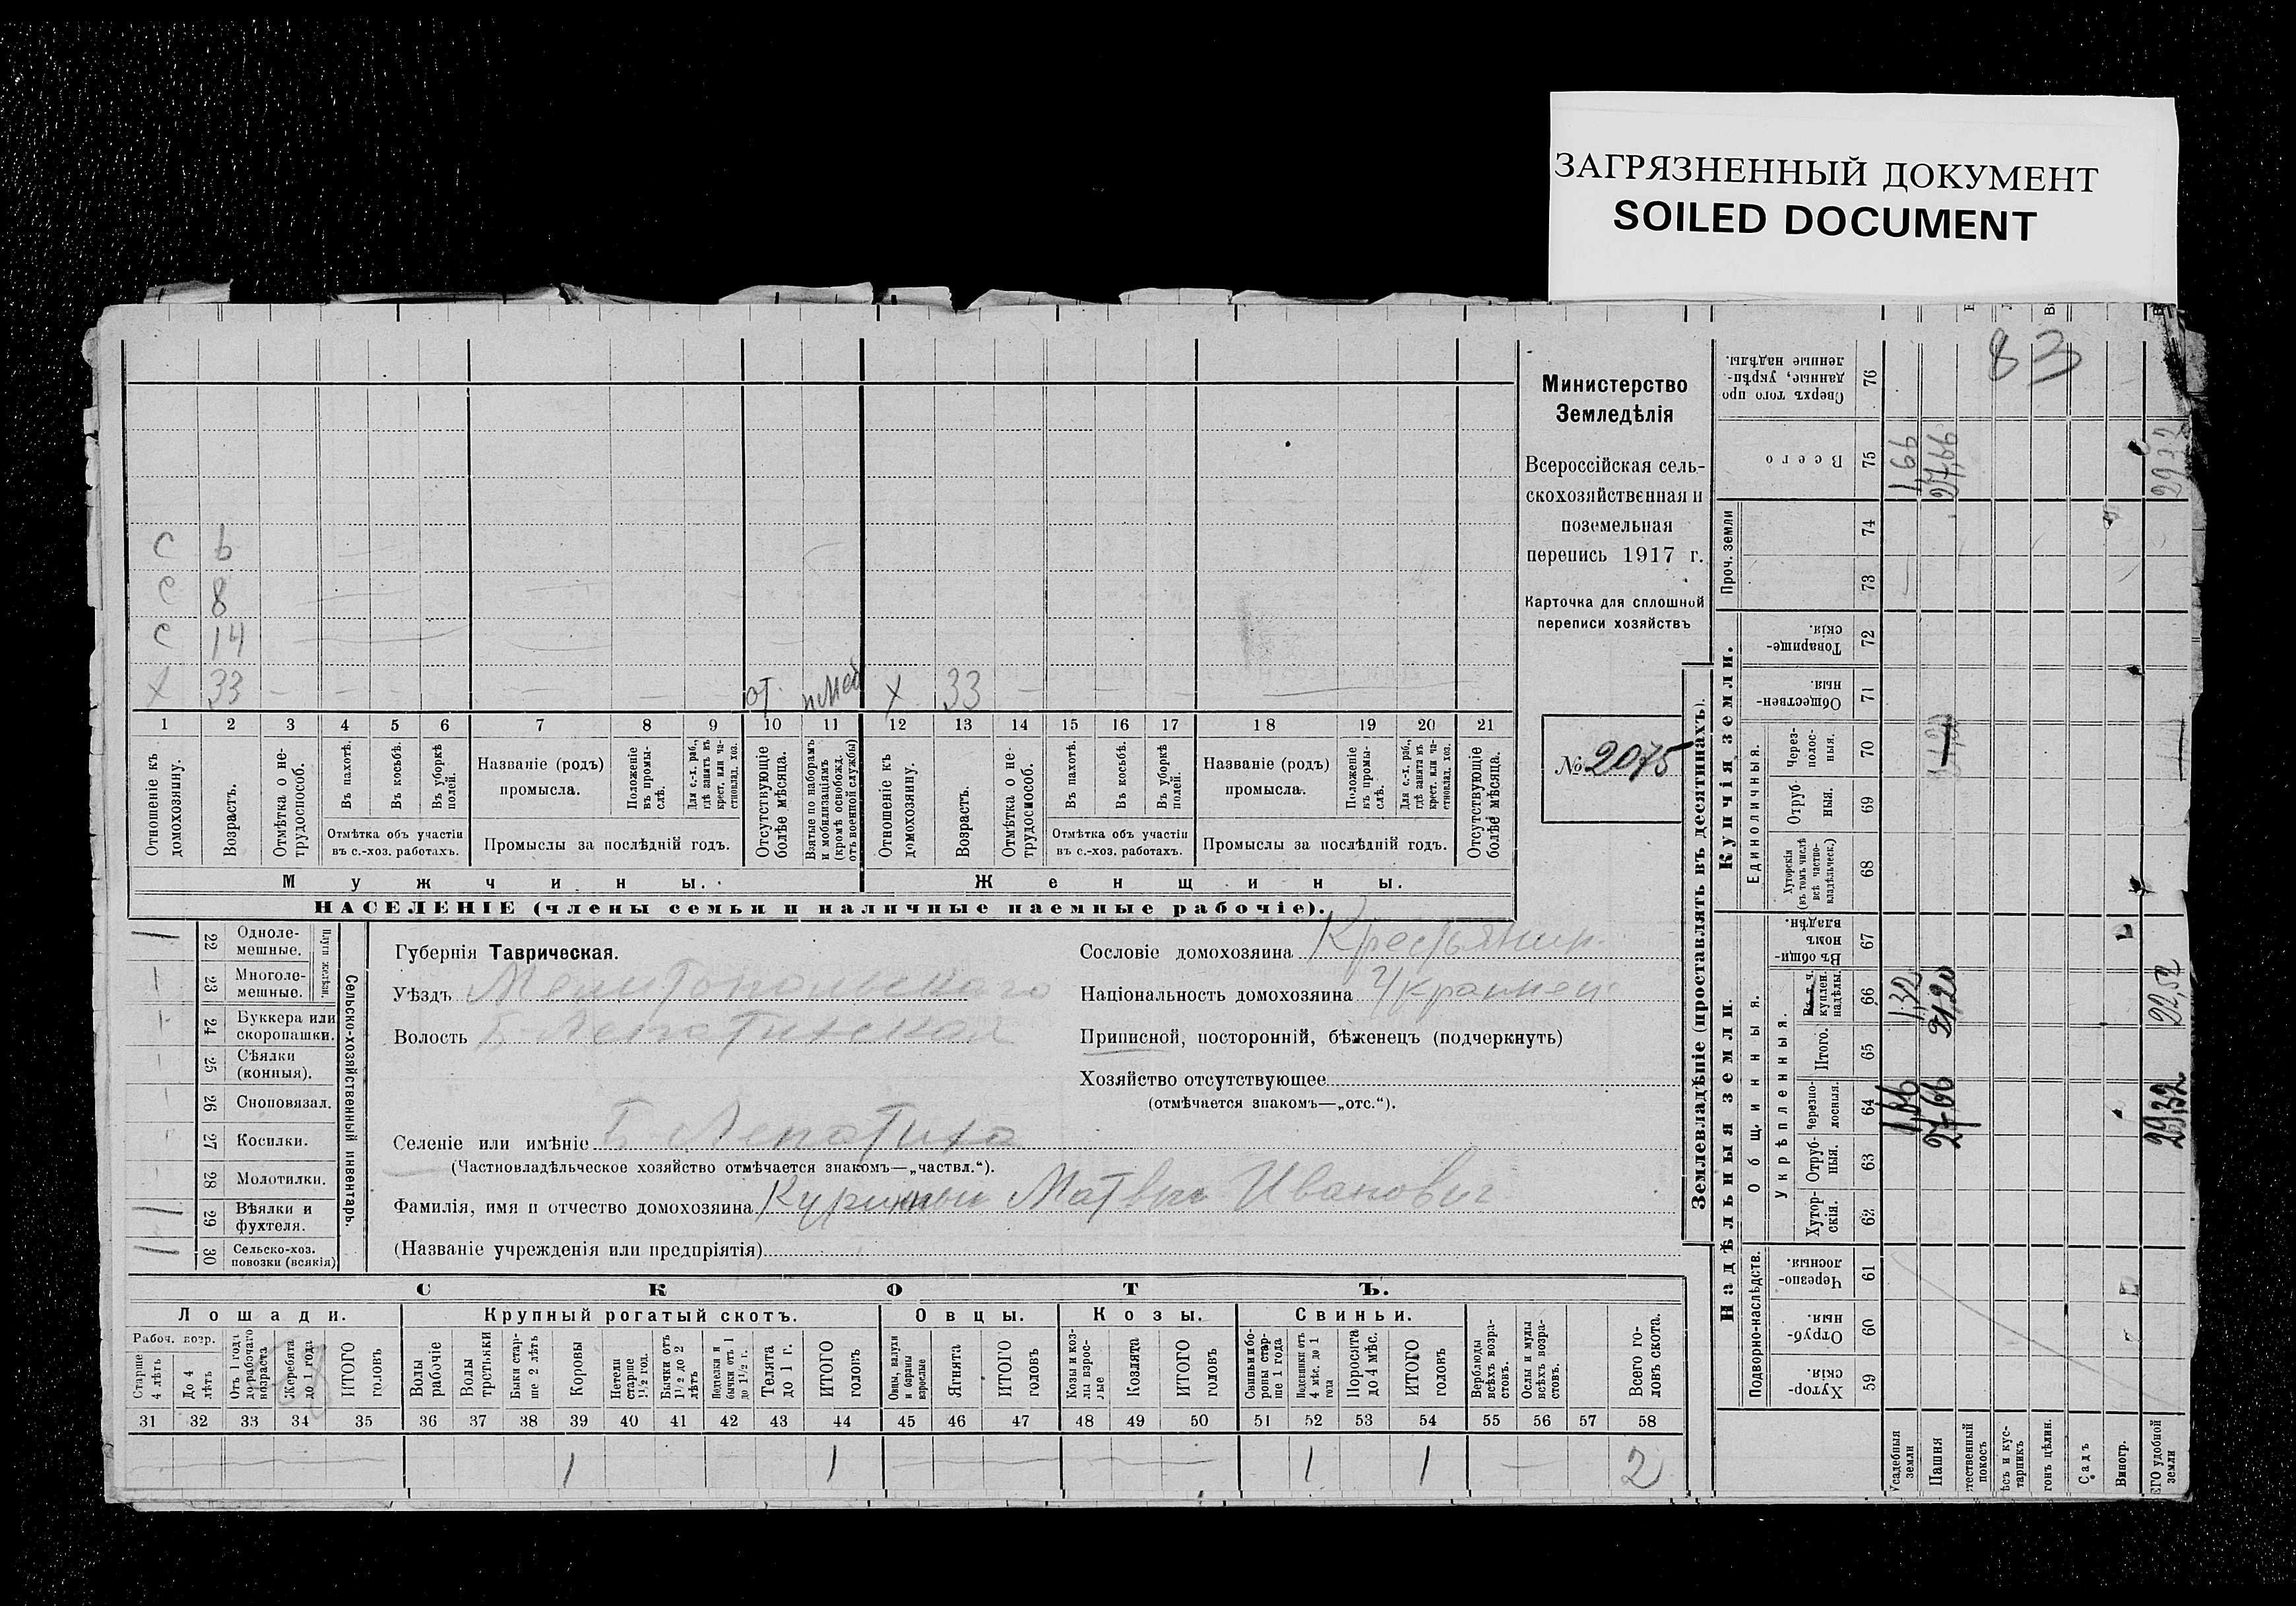 ЗАГРЯЗНЕННЫЙ ДОКУМЕНТ
SOILED DOCUMENT
83
Министерство
Земледѣлія
Всероссійская сель-
скохозяйственная и
поземельная
перепись 1917 г.
Карточка для сплошной
переписи хозяйствъ
№ 2075
С 6
С 8
С 14
Х 33 — — — — — — — от. Х 33 —
1 2 3 4 5 6 7 8 9 10 11 12 13 14 15 16 17 18 19 20 21
Отношеніе къ домохозяину.
Возрастъ.
Отмѣтка о не-трудоспособ.
Въ пахотѣ.
Въ косьбѣ.
Въ уборкѣ полей.
Отмѣтка объ участіи
въ с.-хоз. работахъ.
Названіе (родъ)
промысла.
Положеніе въ промы-слѣ.
Для с.-х. раб., гдѣ занятъ въ крест. или ча-стновлад. хоз.
Промыслы за послѣдній годъ.
Отсутствующіе болѣе мѣсяца.
Взятые по наборамъ и мобилизаціямъ (кромѣ освобожд. отъ военной службы)
Отношеніе къ домохозяину.
Возрастъ.
Отмѣтка о не-трудоспособ.
Въ пахотѣ.
Въ косьбѣ.
Въ уборкѣ полей.
Отмѣтка объ участіи
въ с.-хоз. работахъ.
Названіе (родъ)
промысла.
Положеніе въ промы-слѣ.
Для с.-х. раб., гдѣ занята въ крест. или ча-стновлад. хоз.
Промыслы за послѣдній годъ.
Отсутствующіе болѣе мѣсяца.
Мужчины. Женщины.
НАСЕЛЕНІЕ (члены семьи и наличные наемные рабочіе).
22 Одноле-мешные.
23 Многоле-мешные.
Плуги желѣзн.
24 Буккера или скоропашки.
25 Сѣялки (конныя).
26 Сноповязал.
27 Косилки.
28 Молотилки.
29 Вѣялки и фухтеля.
30 Сельско-хоз. повозки (всякія)
Сельско-хозяйственный инвентарь.
Губернія Таврическая.
Уѣздъ Мелитопольскаго
Волость Б-Лепатихская
Селеніе или имѣніе Б. Лепатиха
(Частновладѣльческое хозяйство отмѣчается знакомъ—„частвл.“).
Фамилія, имя и отчество домохозяина Матвѣй Ивановъ
(Названіе учрежденія или предпріятія)
Сословіе домохозяина Крестьянин.
Національность домохозяина Украинец
Приписной, посторонній, бѣженецъ (подчеркнуть)
Хозяйство отсутствующее
(отмѣчается знакомъ—„отс.“).
СКОТЪ.
Лошади. Крупный рогатый скотъ. Овцы. Козы. Свиньи.
Рабоч. возр.
Старше 4 лѣтъ
До 4 лѣтъ
Отъ 1 года до рабочаго возраста
Жеребята до 1 года
ИТОГО головъ
Волы рабочіе
Волы третьяки
Быки стар-ше 2 лѣтъ
Коровы
Нетели старше 1½ год.
Бычки отъ 1½ до 2 лѣтъ
Нетелки и бычки отъ 1 до 1½ г.
Телята до 1 г.
ИТОГО головъ
Овцы, валухи и бараны взрослые
Ягнята
ИТОГО головъ
Козы и коз-лы взрос-лые
Козлята
ИТОГО головъ
Свиньи и бо-ровы стар-ше 1 года
Подсвинки отъ 4 мѣс. до 1 года
Поросята до 4 мѣс.
ИТОГО головъ
Верблюды всѣхъ возра-стовъ.
Ослы и мулы всѣхъ возра-стовъ.
Всего го-ловъ скота.
31 32 33 34 35 36 37 38 39 40 41 42 43 44 45 46 47 48 49 50 51 52 53 54 55 56 57 58
1 1 1 1 — 2
Землевладѣніе (проставлять въ десятинахъ).
Надѣльныя земли. Купчія земли. Проч. земли
Подворно-наслѣдств.
Общинныя.
Укрѣпленныя.
Единоличныя.
Хутор-скія. 59
Отруб-ныя 60
Черезпо-лосныя. 61
Хутор-скія. 62
Отруб-ныя. 63
Черезпо-лосныя. 64
Итого. 65
Въ т. ч. куплен. надѣлы. 66
Въ общи-номъ владѣн. 67
Хуторскія (въ томъ числѣ всѣ частно-владѣльческ.) 68
Отруб-ныя. 69
Через-полос-ныя. 70
Обществен-ныя. 71
Товарище-скія. 72
73
74
Всего 75
Сверхъ того про-данные, укрѣп-ленные надѣлы. 76
Усадебныя земли 1,66 1,32 1,66
Пашня 27,66 21,20 27,66
тественный покосъ
ѣсъ и кус-тарникъ
гонъ цѣлин.
Садъ
Виногр.
ЕГО удобной земли 29,32 22,52 29,32